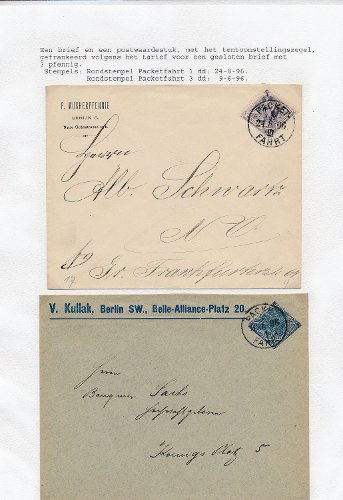 Een brief en een postwaardestuk, met het tentoonstellingszegel,
gefrankeerd volgens het tarief voor een gesloten brief met
3 pfennig.
Stempels: Rondstempel Packetfahrt 1 dd: 24-8-96.
Rondstempel Packetfahrt 3 dd: 9-6-96.
F. WUCHERPFENNIG
BERLIN C.
PACKET
24 8 96
FAHRT
Herrn
Alb. Schwartz
N. W.
Gr. Frankfurterstr
V. Kuliak, Berlin SW., Belle-Alliance-Platz 20.
PACKET
FAHRT
Herrn
Sachs
Hochwohlgeboren
Königs Platz 5